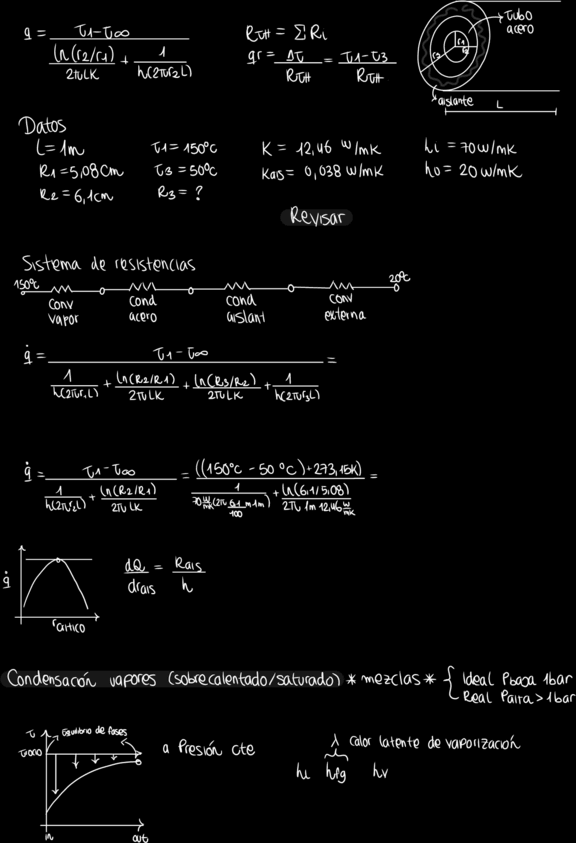 q = (T1-T∞) / (ln(r2/r1)/2πLK + 1/h(2πr2L))
RTH = ΣRi
qr = ΔT/RTH = (T1-T3)/RTH
tubo
acero
r1
r2
aislante
L
Datos
L=1m T1=150°C K = 12,46 W/mK hi = 70 W/mK
R1=5,08cm T3=50°C Kais= 0,038 W/mK ho= 20 W/mK
R2= 6,1cm R3= ?
Revisar
Sistema de resistencias
150°C 20°C
conv vapor
cond acero
cond aislant
conv externa
q̇ = (T1-T∞) / (1/h(2πr1L) + ln(R2/R1)/2πLK + ln(R3/R2)/2πLK + 1/h(2πr3L)) =
q̇ = (T1-T∞) / (1/h(2πr2L) + ln(R2/R1)/2πLK) = ((150°C - 50°C)+273,15K) / (1/70 W/mK (2π 6.1/100 m 1m) + ln(6.1/5.08)/2π 1m 12,46 W/mK) =
q̇
rcritico
dQ/drais = Rais/h
Condensación vapores (sobrecalentado/saturado) * mezclas * { Ideal Pbaja 1bar
Real Palta > 1bar
T Equilibrio de fases
in out
a Presión cte
λ calor latente de vaporización
hL hfg hv